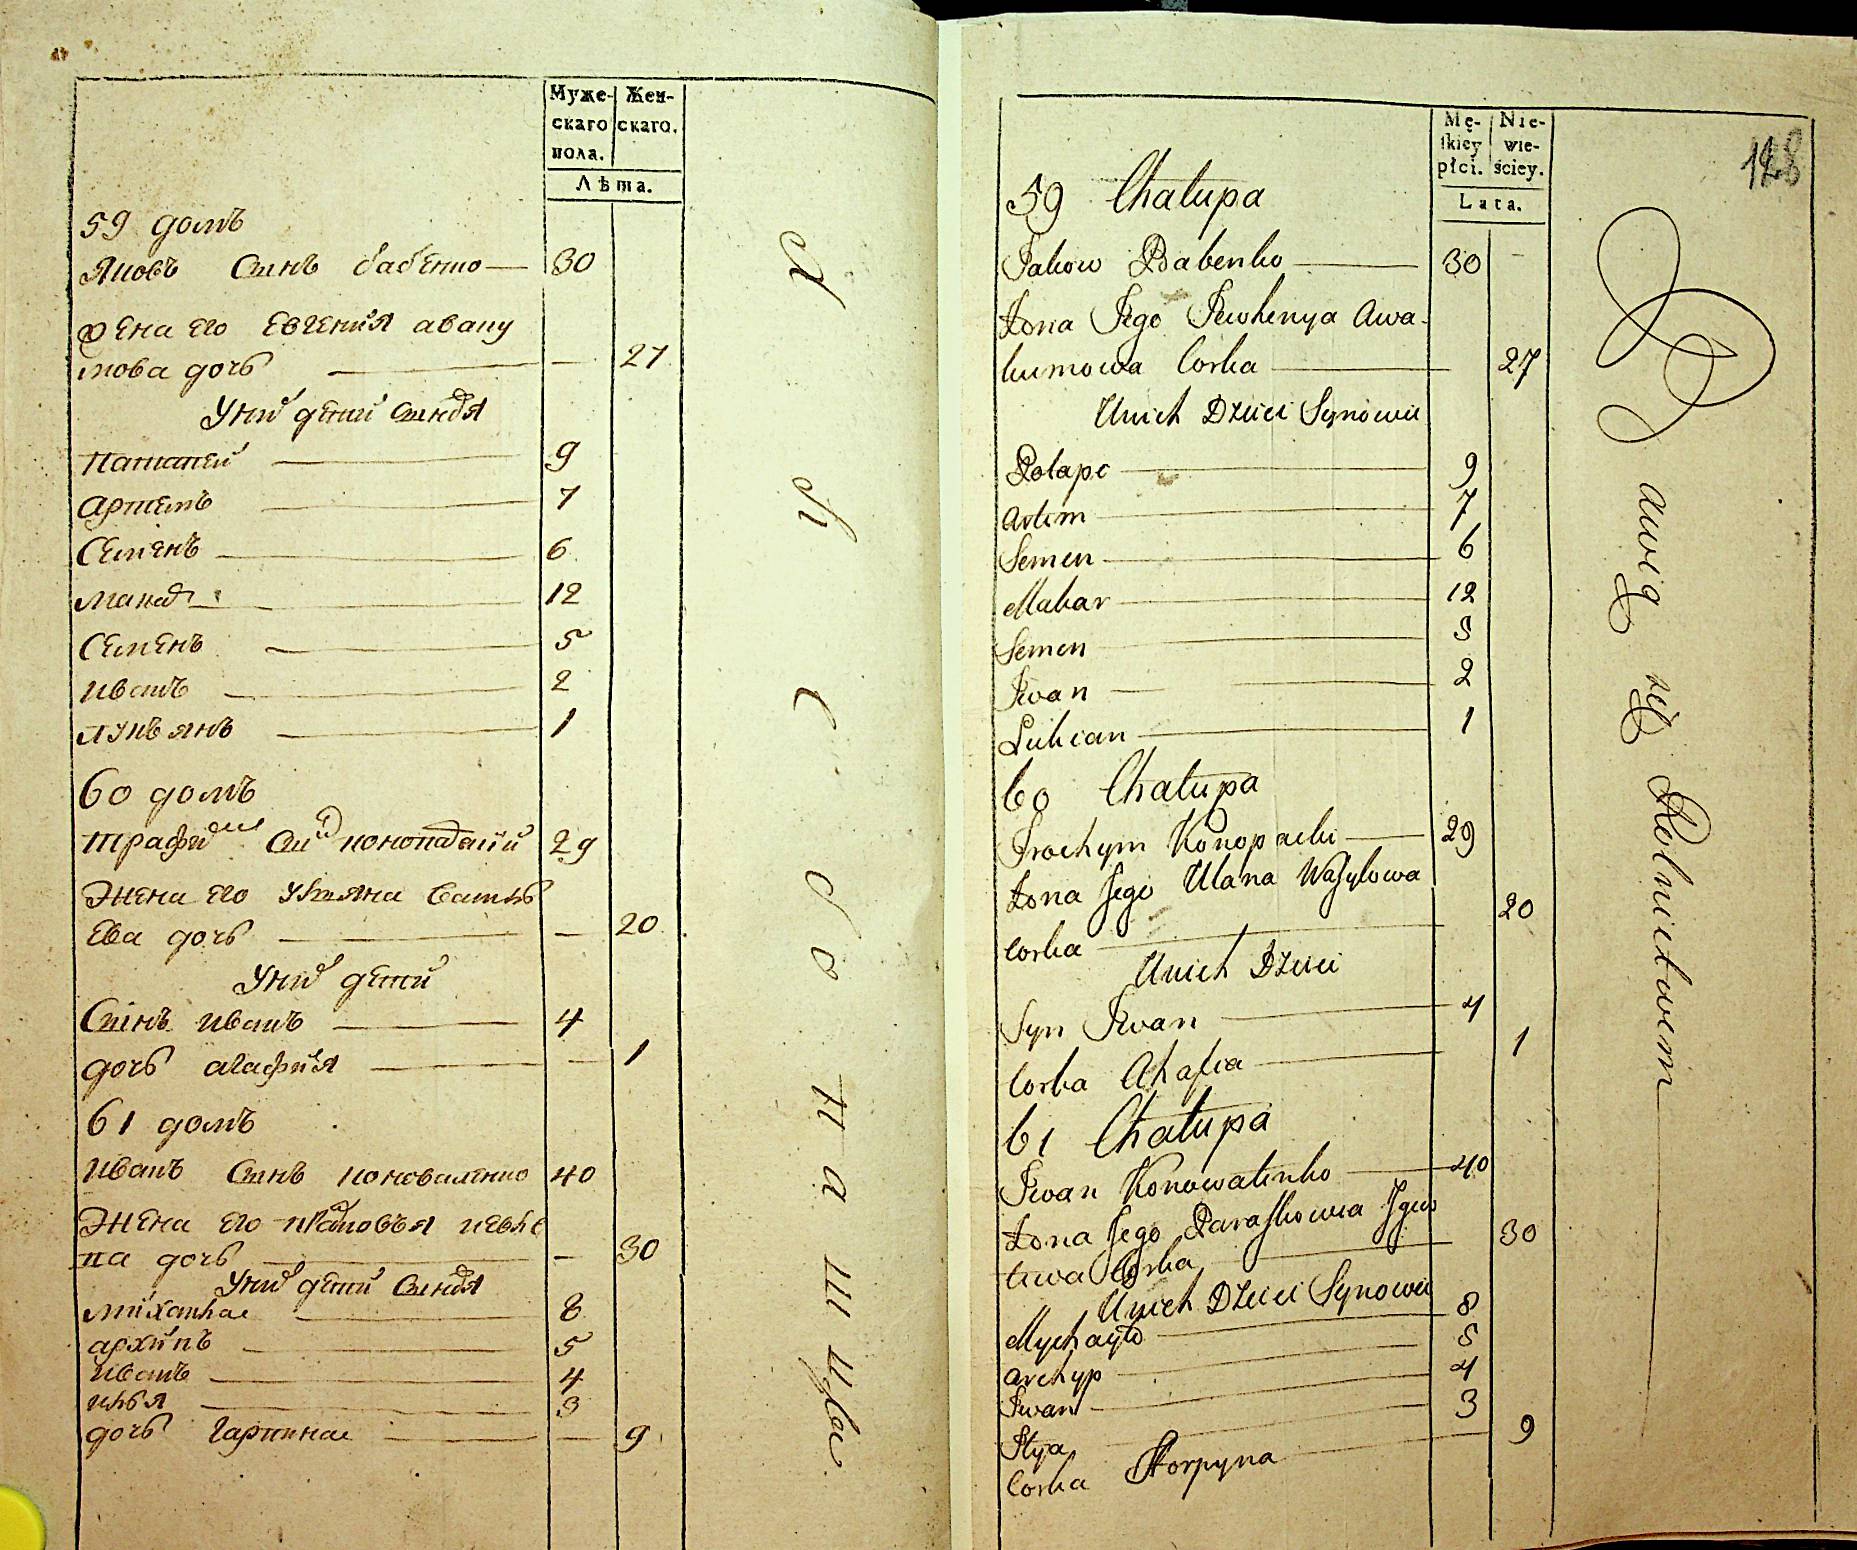 Муже-
скаго
пола.
Жен-
скаго.
Лѣта.
59 домъ
Яковъ Синъ бабенко 30
жена его евгенія аваку
мова дочь — 27
У них детей Синовя
Патапей 9
артемъ 7
Семенъ 6
Макар 12
Семенъ 5
иванъ 2
лукъянъ 1
60 домъ
трафим Син конопацкий 29
Жена его ульяна василь
ева дочь — 20
У них детей
Синъ иванъ 4
дочь агафия — 1
61 домъ
иванъ Синъ коноваленко 40
Жена его
на дочь — 30
У них детей Синовя
михайла 8
архипъ 5
иванъ 4
илья 3
дочь гарпина — 9
Mę-
ſkiey
płci.
Nie-
wie-
ściey.
Lata.
128
59 Chałupa
Jakow Babenko 30
Żona Jego Jewhenya Awa-
kumowa Corka 27
Unich Dzieci Synowie
Potapc 9
Artem 7
Semen 6
Makar 12
Semen 5
Iwan 2
Lukian 1
60 Chałupa
Trochym Konopacki 29
Żona Jego Ulana Wasylowa
Corka 20
Unich Dzieci
Syn Iwan 4
Corka Ahafia 1
61 Chałupa
Iwan Konowalenko 40
Żona Jego Paraſkowia
Corka 30
Unich Dzieci Synowie
Mychayło 8
Archyp 5
Iwan 4
Ilya 3
Corka Horpyna 9
awią się Rolnictwem